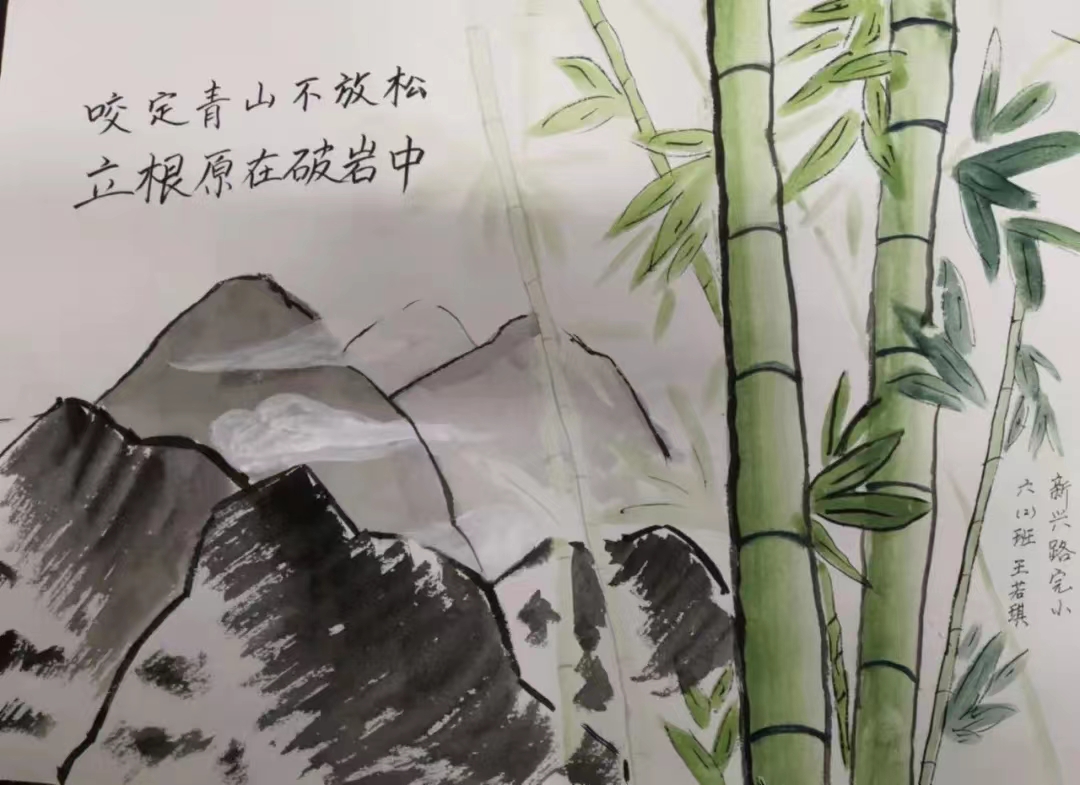 咬定青山不放松
立根原在破岩中
新兴路完小
六(2)班 王若琪